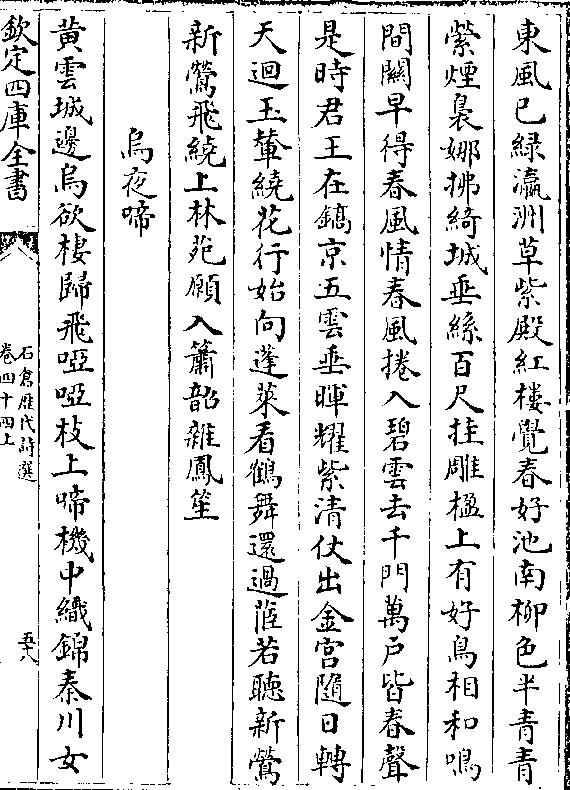 東風已綠瀛洲草紫殿紅樓覺春好池南柳色半青青
縈煙裊娜拂綺城垂絲百尺挂雕楹上有好鳥相和鳴
間關早得春風情春風捲入碧雲去千門萬戶皆春聲
是時君王在鎬京五雲垂暉耀紫清仗出金宮隨日轉
天迴玉輦繞花行始向蓬萊看鶴舞還過茝若聽新鶯
新鶯飛繞上林苑願入簫韶雜鳳笙
烏夜啼
黃雲城邊烏欲棲歸飛啞啞枝上啼機中織錦秦川女
欽定四庫全書
石倉歷代詩選
卷四十四上
五六